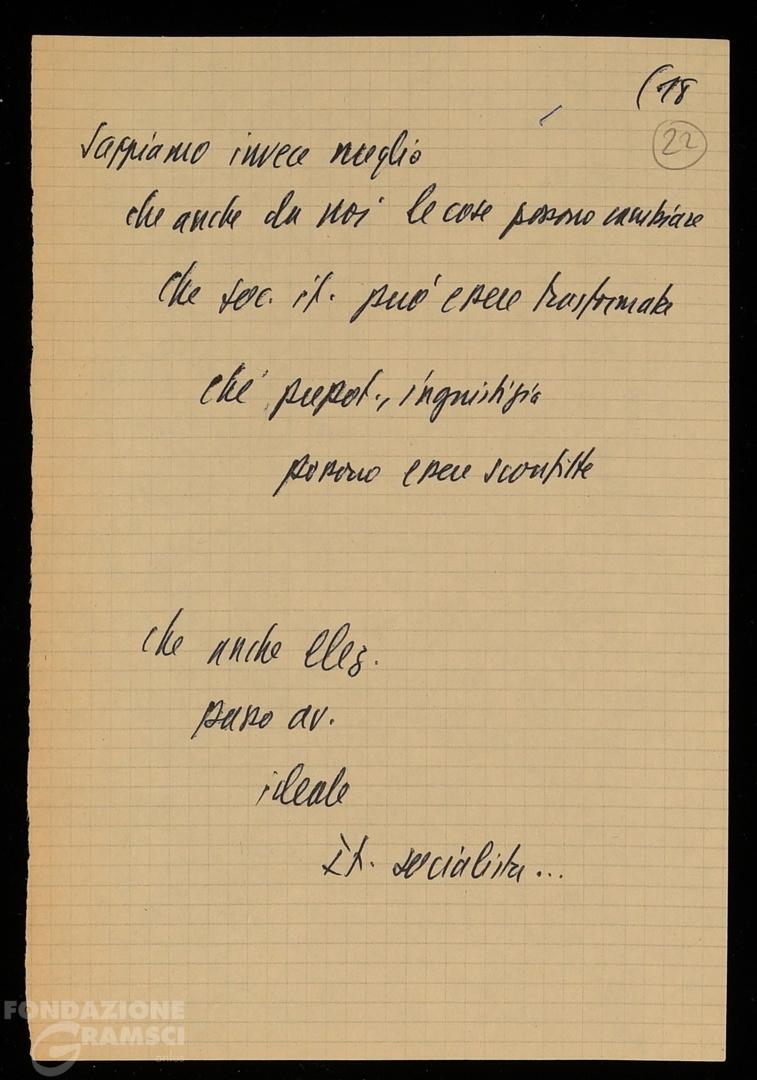 (18
22
Sappiamo invece meglio
che anche da noi le cose possono cambiare
che soc. it. può essere trasformata
che prepot., ingiustizia
possono essere sconfitte
che anche elez.
passo av.
ideale
It. socialista...
FONDAZIONE
GRAMSCI
onlus